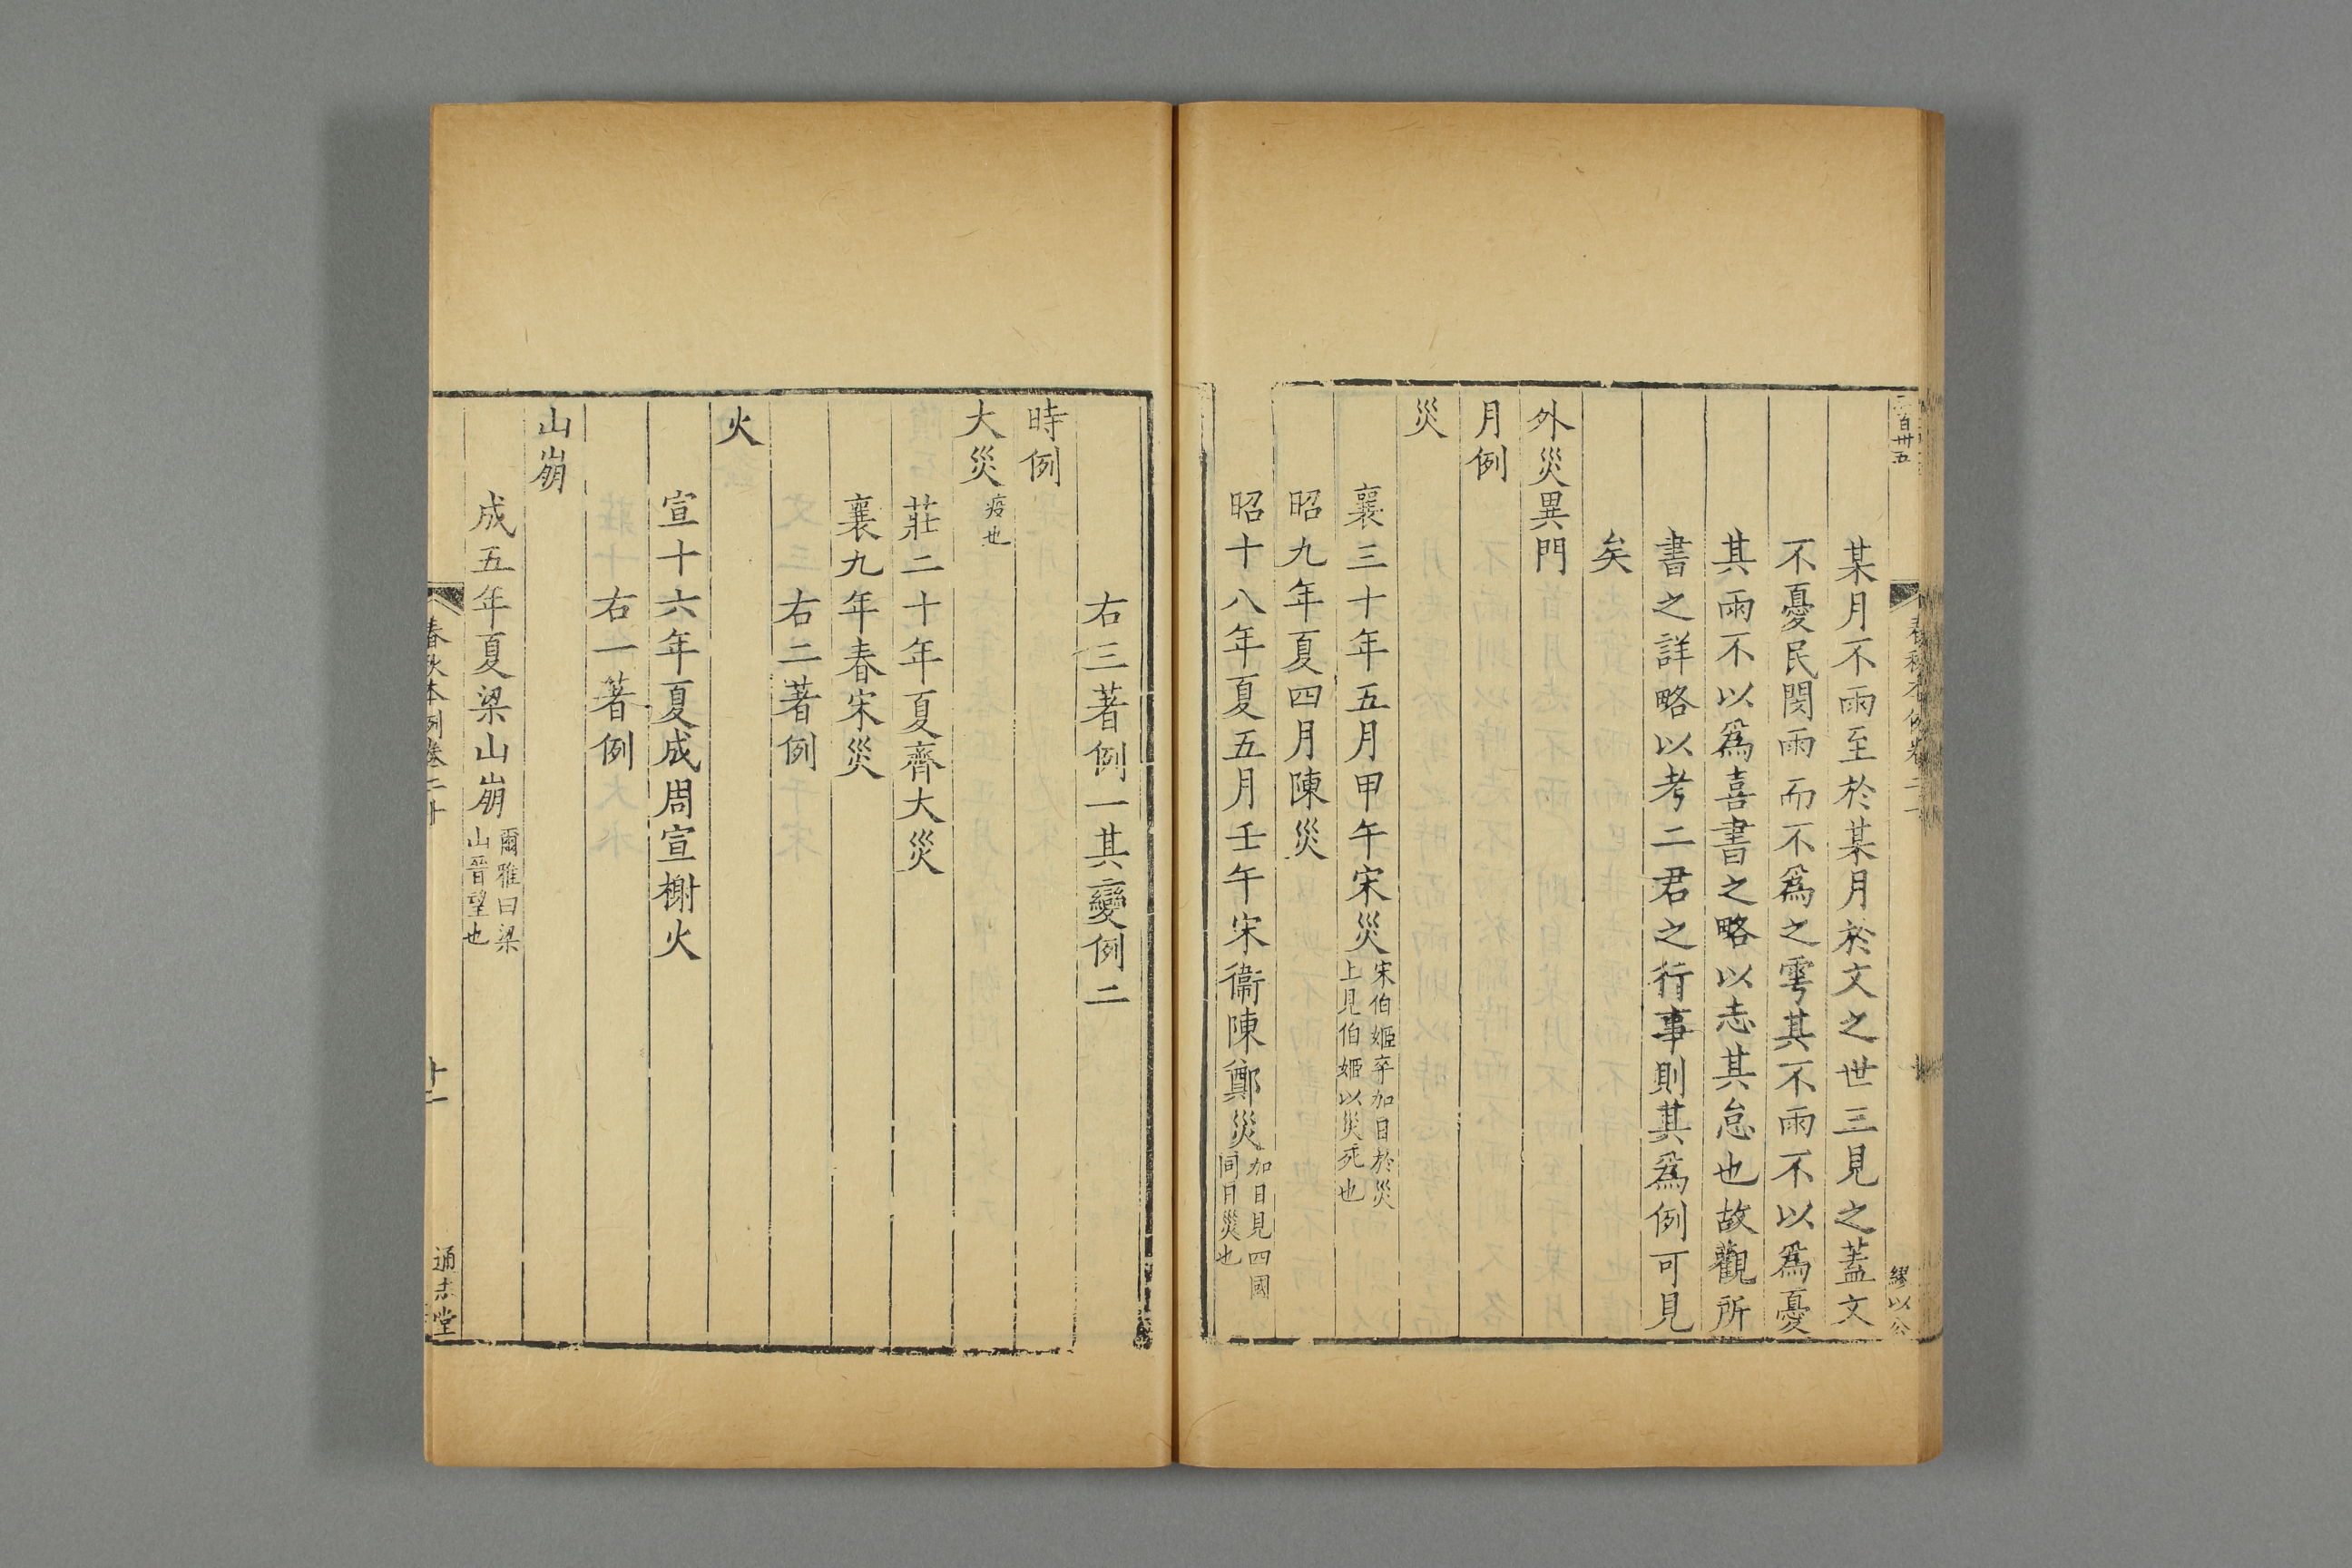 某月不雨至於某月於文之世三見之蓋文
不憂民閔雨而不爲之雩其不雨不以爲憂
其雨不以爲喜書之略以志其怠也故觀所
書之詳略以考二君之行事則其爲例可見
矣
外災異門
月例
災
襄三十年五月甲午宋災宋伯姬卒加日於災
上見伯姬以災死也
昭九年夏四月陳災
昭十八年夏五月壬午宋衞陳鄭災加日見四國
同日災也
右三著例一其變例二
時例
大災疫也
莊二十年夏齊大災
襄九年春宋災
右二著例
火
宣十六年夏成周宣榭火
右一著例
山崩
成五年夏梁山崩爾雅曰梁
山晉望也
春秋本例卷二十
十二
通志堂